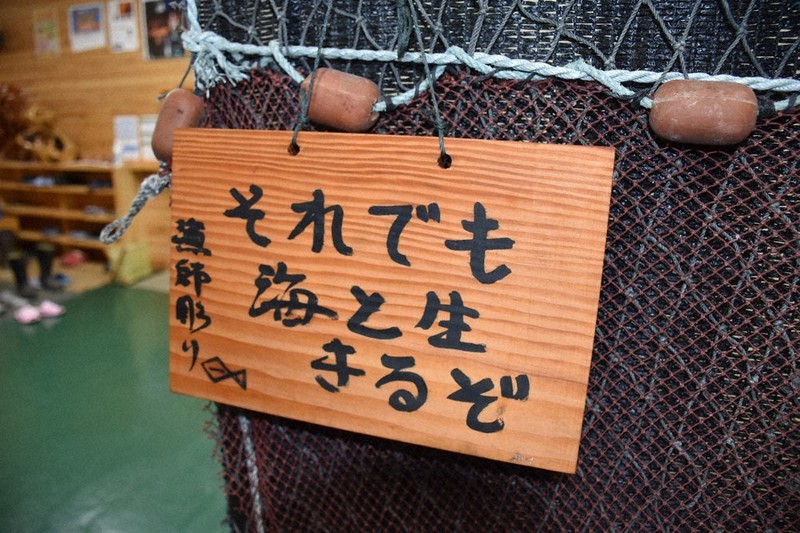 それでも
海と生
きるぞ
漁師彫り